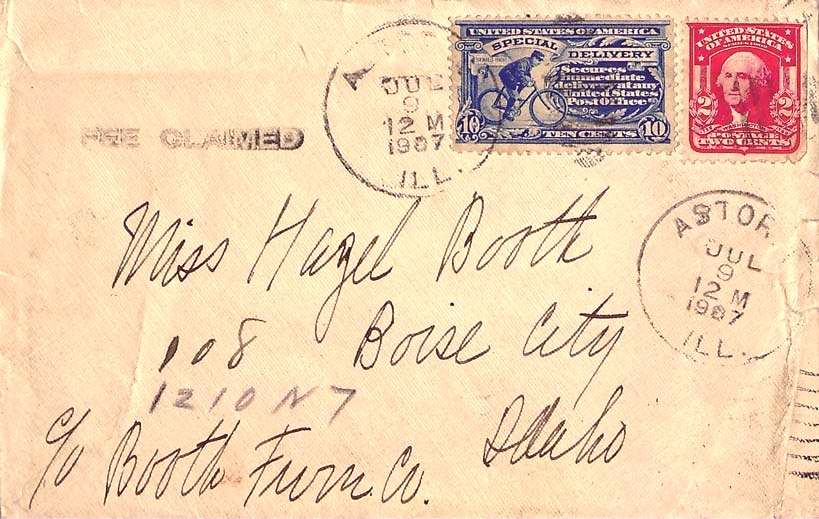 UNITED STATES OF AMERICA
SPECIAL DELIVERY
SERIES 1902
Secures
immediate
delivery at any
United States
Post Office
10 TEN CENTS 10
UNITED STATES
OF AMERICA
SERIES 1902
2 2
WASHINGTON
POSTAGE
TWO CENTS
JUL
9
12 M
1907
ILL.
FEE CLAIMED
ASTOR
JUL
9
12 M
1907
ILL.
Miss Hazel Booth
108 Boise City
1210 N 7
Idaho
c/o Booth Furn. Co.